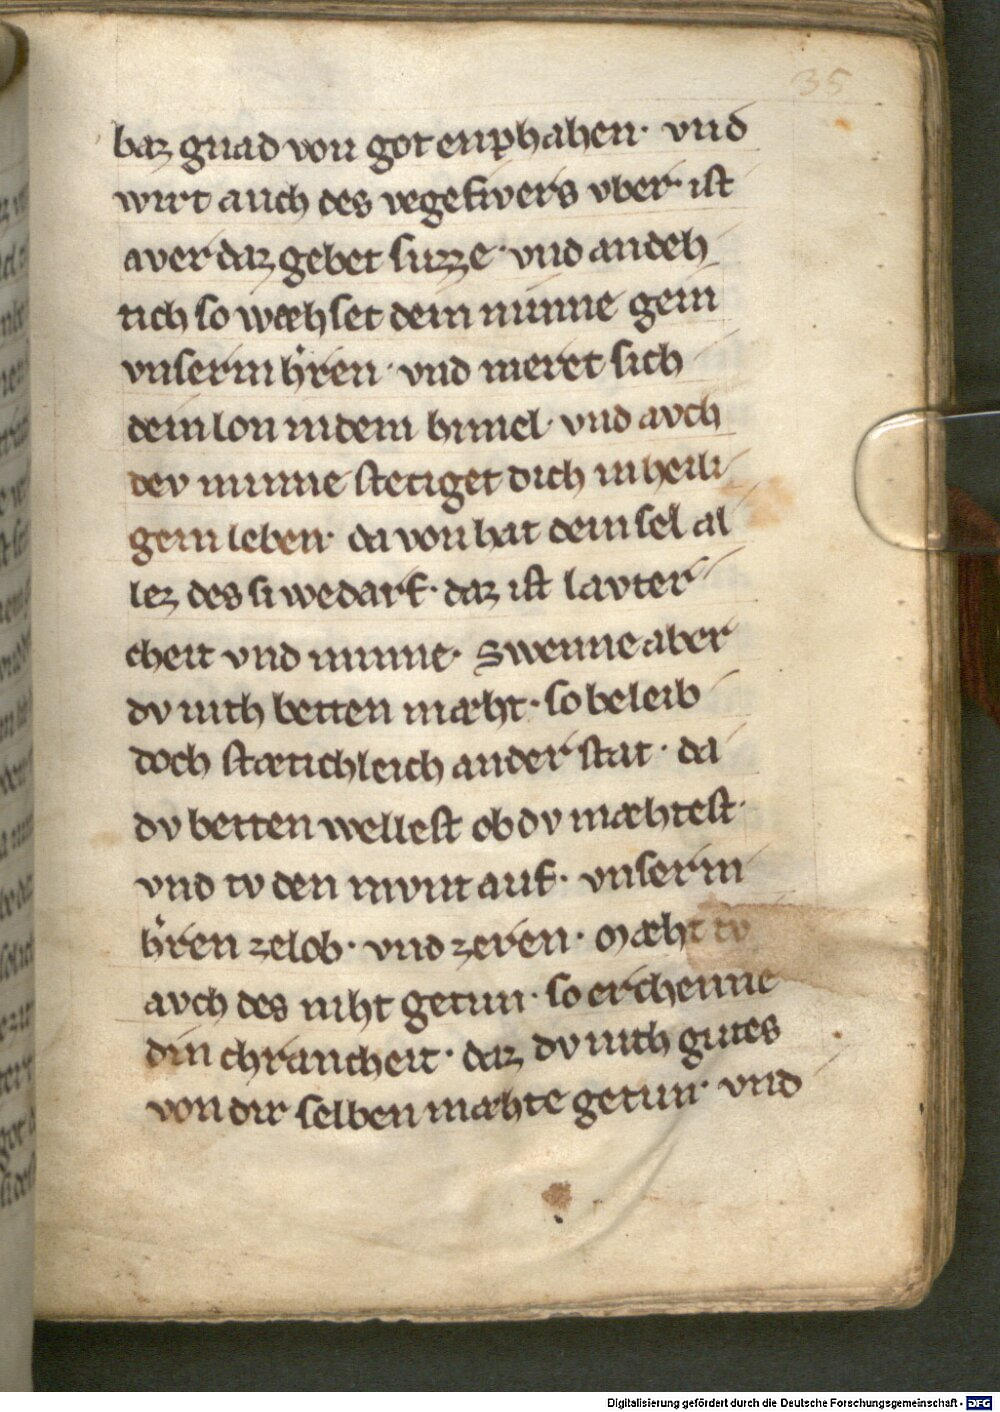 35
baz gnad von got enphahen· vnd
wirt auch des vegefivers vber· ist
aver daz gebet suzze· vnd andeh
tich so wæhset dein minne gein
vnserm hren· vnd meret sich
dein lon in dem himel· vnd avch
dev minne stetiget dich in heili
gem leben· da von hat dein sel al
lez des si wedarf· daz ist lavter
cheit vnd minne· Swenne aber
dv nith betten mæht· so beleib
doch stætichleich an der stat· da
dv betten wellest ob dv mæhtest·
vnd tv den mvnt auf· vnserm
hren ze lob· vnd ze eren· Mæht tv
avch des niht getun· so erchenne
din chrancheit· daz dv nith gutes
von dir selben mæhte getun· vnd
Digitalisierung gefördert durch die Deutsche Forschungsgemeinschaft - DFG